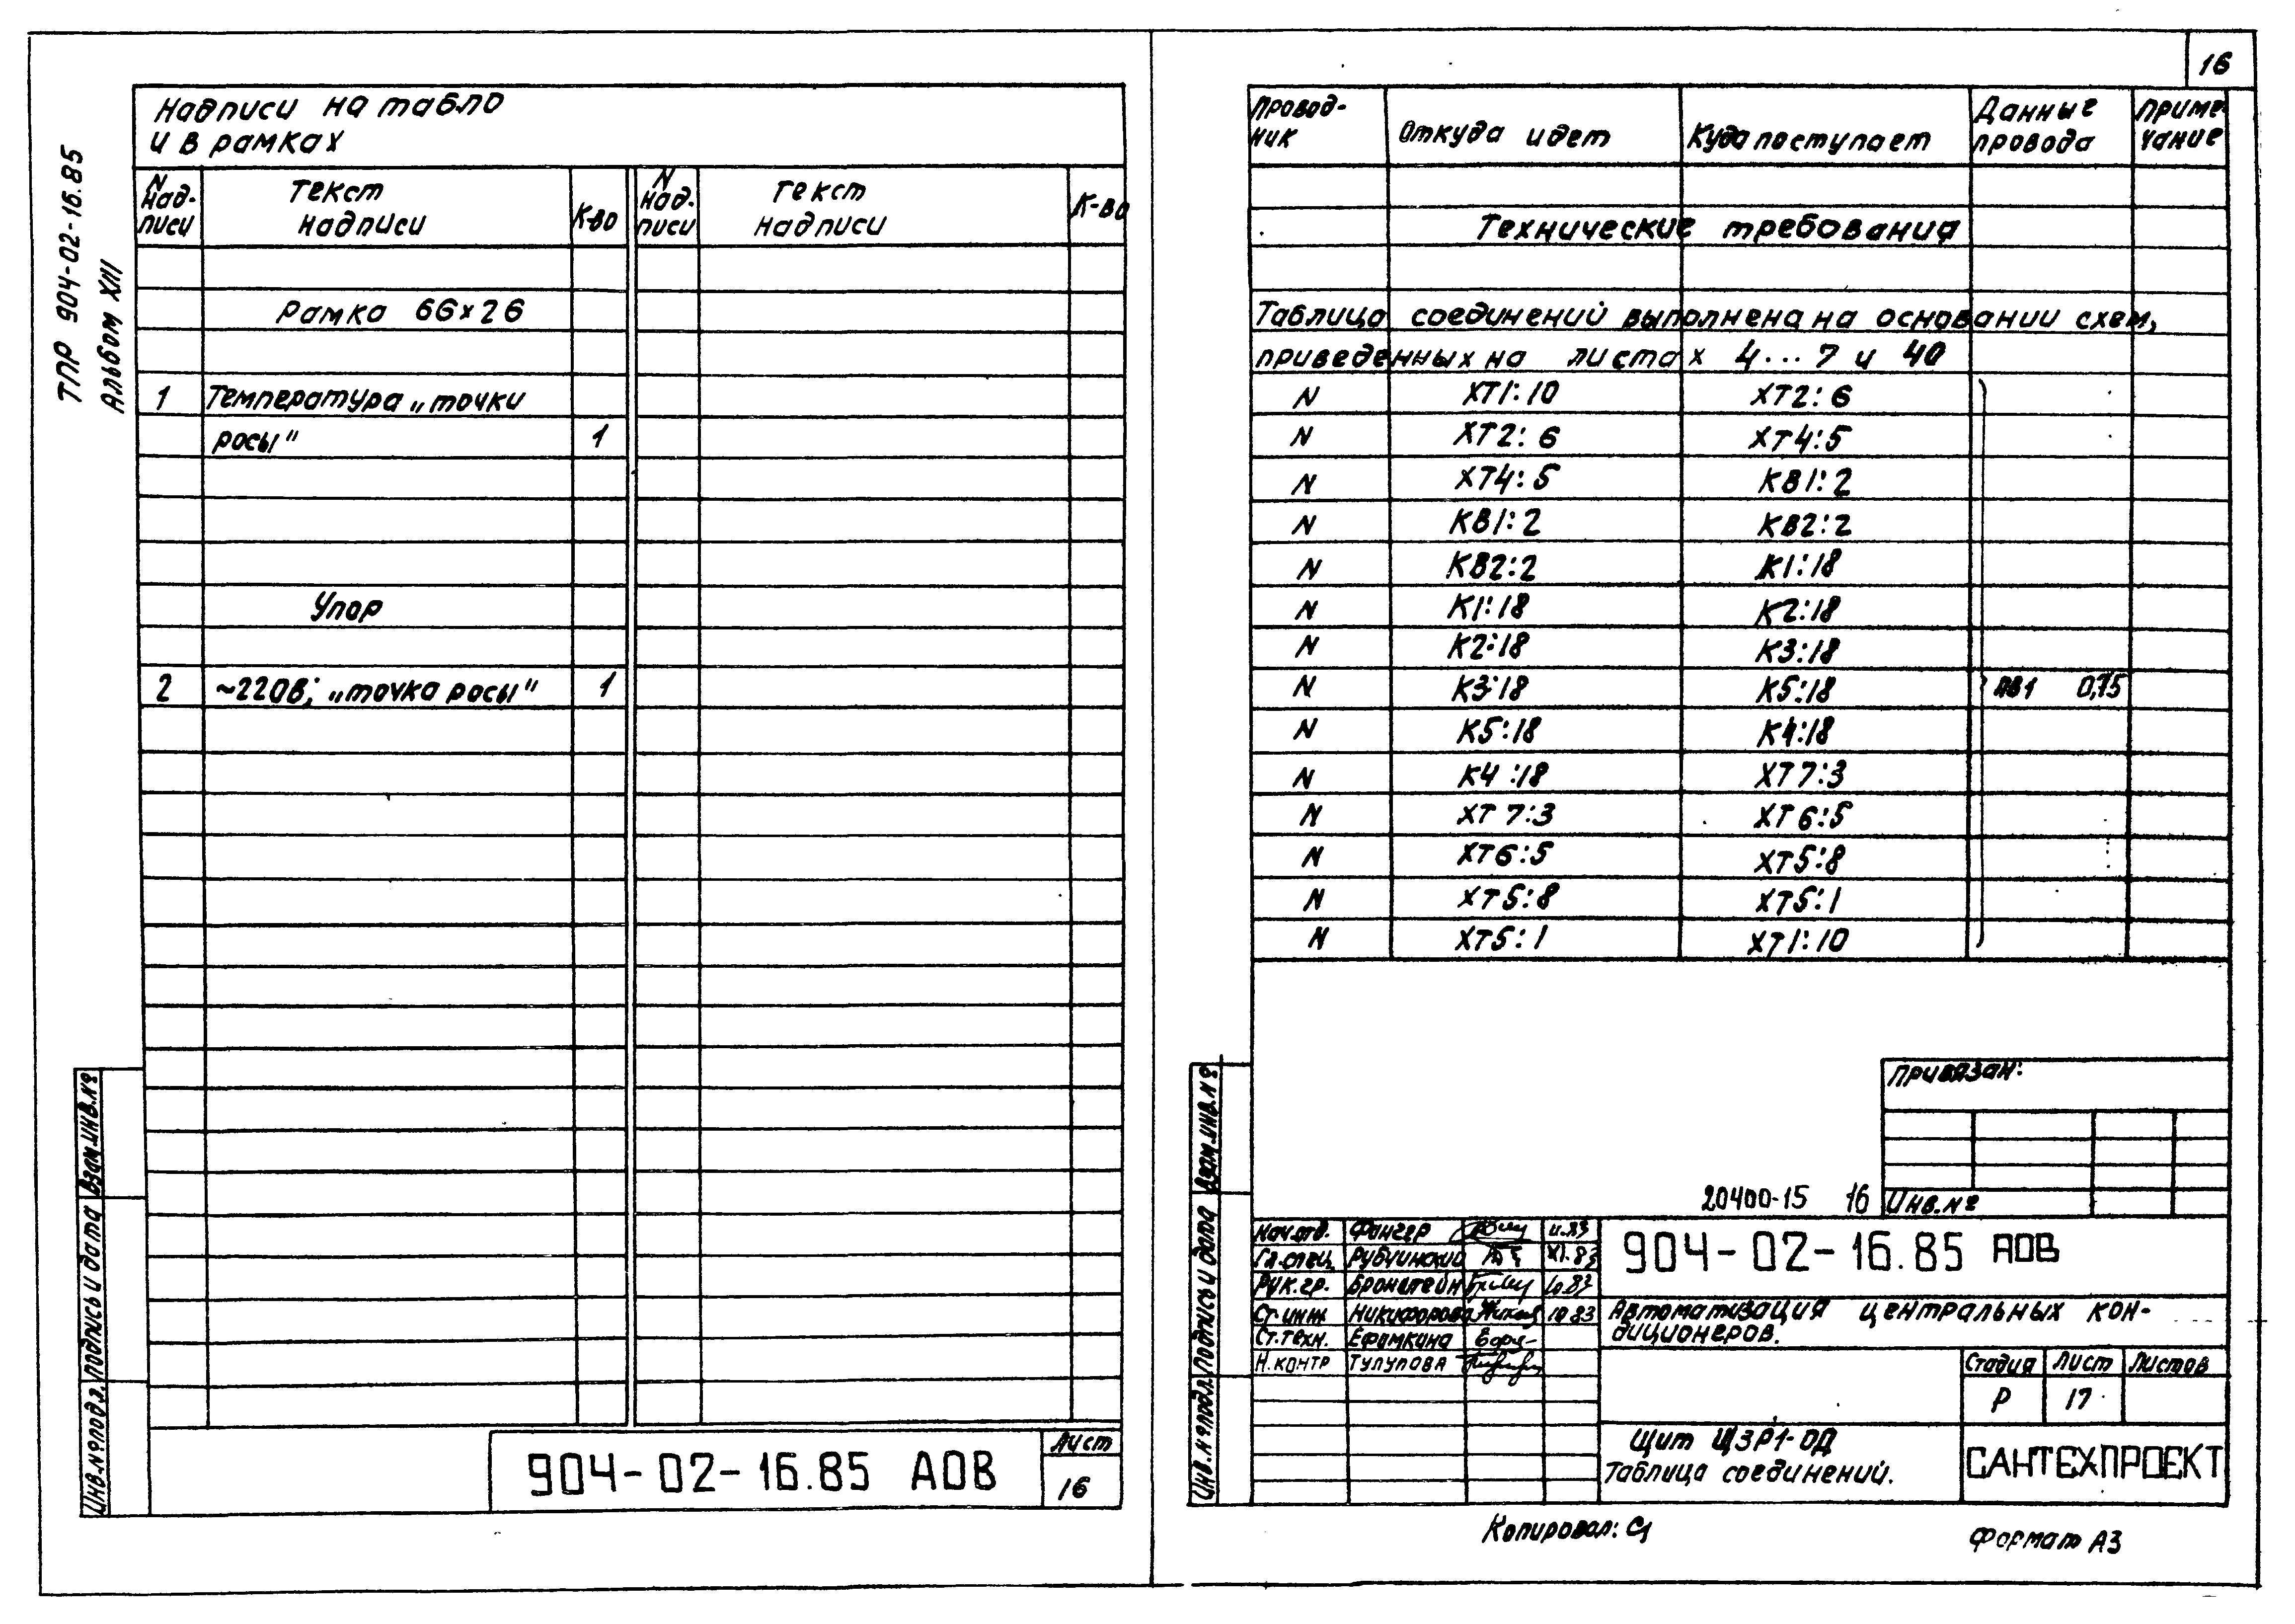 16
ТПР 904-02-16.85
Альбом XIII
Надписи на табло
и в рамках
N надписи Текст надписи К-во N надписи Текст надписи К-во
Рамка 66×26
1 Температура „точки
росы" 1
Упор
2 ~220В; „точка росы" 1
904-02-16.85 АОВ
Лист
16
Инв.№подл. Подпись и дата Взам.инв.№
Провод-
ник Откуда идет Куда поступает Данные провода Приме-
чание
Технические требования
Таблица соединений выполнена на основании схем,
приведенных на листах 4...7 и 40
N ХТ1:10 ХТ2:6
N ХТ2:6 ХТ4:5
N ХТ4:5 КВ1:2
N КВ1:2 КВ2:2
N КВ2:2 К1:18
N К1:18 К2:18
N К2:18 К3:18
N К3:18 К5:18 ПВ1 0,75
N К5:18 К4:18
N К4:18 ХТ7:3
N ХТ7:3 ХТ6:5
N ХТ6:5 ХТ5:8
N ХТ5:8 ХТ5:1
N ХТ5:1 ХТ1:10
Привязан:
Инв.№
20400-15 16
Инв.№подл. Подпись и дата Взам.инв.№
Нач.отд. Фангер
Гл.спец. Рубчинский XI.83
Рук.гр. Бронштейн
Ст.инж Никифорова
Ст.техн. Ефимкина
Н.контр Тулупова
904-02-16.85 АОВ
Автоматизация центральных кон-
диционеров.
Стадия Лист Листов
Р 17
Щит ЩЗР1-ОД
Таблица соединений.
САНТЕХПРОЕКТ
Копировал:
Формат А3